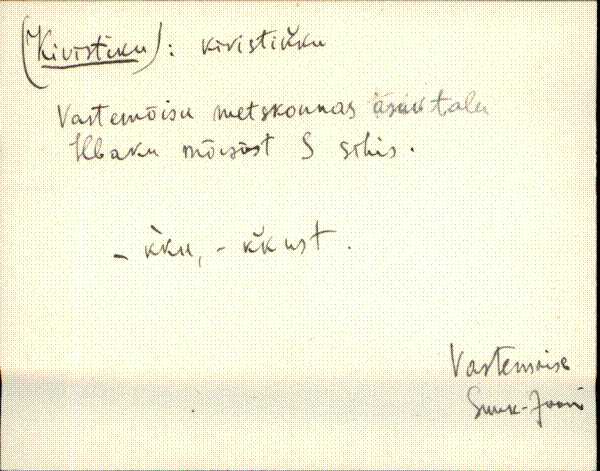 (Kivistiku): kivistik̆ku
Vastemõisa metskonnas talu
mõisast S sihis.
- k̀ku, - k̆kust.
Vastemõisa
Suure-Jaani